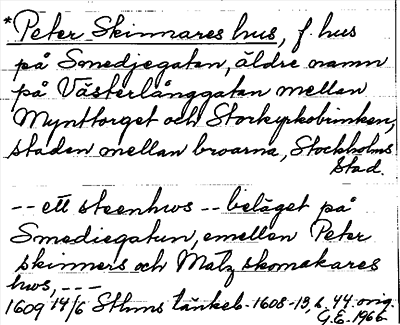 *Peter Skinnares hus, f. hus
på Smedjegatan, äldre namn
på Västerlånggatan mellan
Mynttorget och Storkyrkobrinken,
staden mellan broarna, Stockholms
stad.
-- ett steenhws -- beläget på
Smediegatun, emellan Peter
skinners och Matz skomakares
hws, ---
1609 14/6 Sthms tänkeb. 1608-13, s. 44. orig.
G.E. 1966